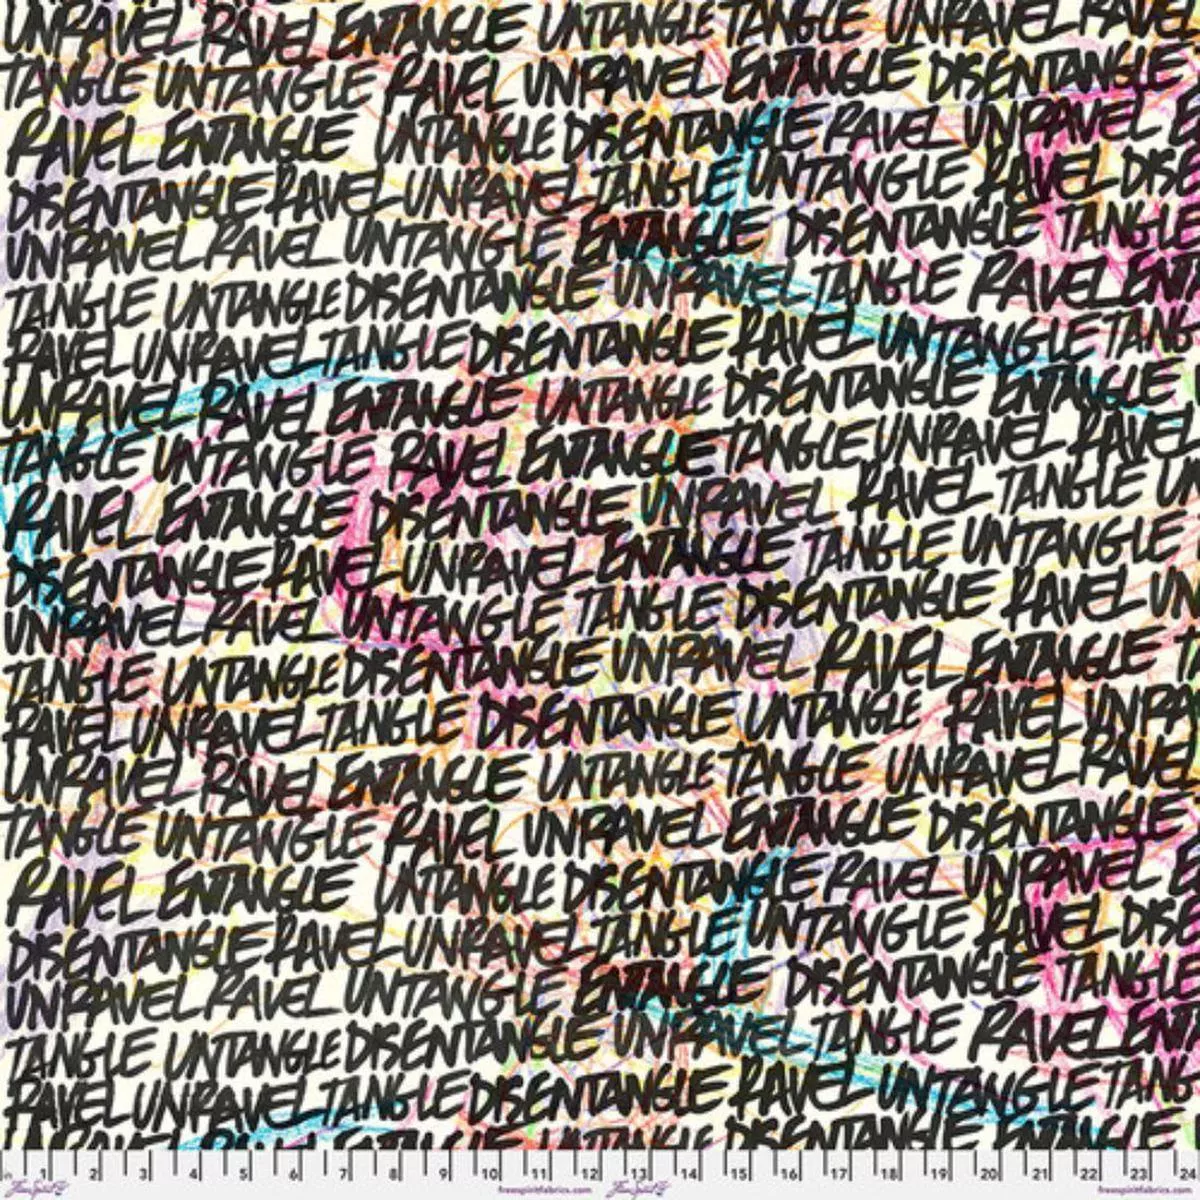 UNRAVEL RAVEL ENTANGLE UNTANGLE TANGLE UNRAVEL RAVEL
TANGLE UNTANGLE RAVEL UNRAVEL ENTANGLE DISENTANGLE
RAVEL ENTANGLE UNTANGLE DISENTANGLE RAVEL UNRAVEL E
DISENTANGLE RAVEL UNRAVEL TANGLE UNTANGLE RAVEL DISE
UNRAVEL RAVEL UNTANGLE ENTANGLE DISENTANGLE TANGLE
TANGLE UNTANGLE DISENTANGLE UNRAVEL TANGLE RAVEL ENT
RAVEL UNRAVEL TANGLE DISENTANGLE RAVEL UNTANGLE TANG
UNRAVEL RAVEL ENTANGLE UNTANGLE DISENTANGLE ENTANGLE
TANGLE UNTANGLE RAVEL ENTANGLE TANGLE UNRAVEL RAVEL
RAVEL ENTANGLE DISENTANGLE UNRAVEL RAVEL TANGLE UN
DISENTANGLE RAVEL UNRAVEL ENTANGLE TANGLE UNTANGLE
UNRAVEL RAVEL UNTANGLE TANGLE DISENTANGLE RAVEL UN
TANGLE UNTANGLE DISENTANGLE UNRAVEL RAVEL ENTANGLE T
RAVEL UNRAVEL TANGLE DISENTANGLE UNTANGLE RAVEL UNRA
UNRAVEL RAVEL ENTANGLE UNTANGLE TANGLE UNRAVEL RAVEL
TANGLE UNTANGLE RAVEL UNRAVEL ENTANGLE DISENTANGLE
RAVEL ENTANGLE UNTANGLE DISENTANGLE RAVEL UNRAVEL E
DISENTANGLE RAVEL UNRAVEL TANGLE UNTANGLE RAVEL DISE
UNRAVEL RAVEL UNTANGLE ENTANGLE DISENTANGLE TANGLE
TANGLE UNTANGLE DISENTANGLE UNRAVEL TANGLE RAVEL ENT
RAVEL UNRAVEL TANGLE DISENTANGLE RAVEL UNTANGLE TANG
1 2 3 4 5 6 7 8 9 10 11 12 13 14 15 16 17 18 19 20 21 22 23 24
FreeSpirit freespiritfabrics.com FreeSpirit freespiritfabrics.com